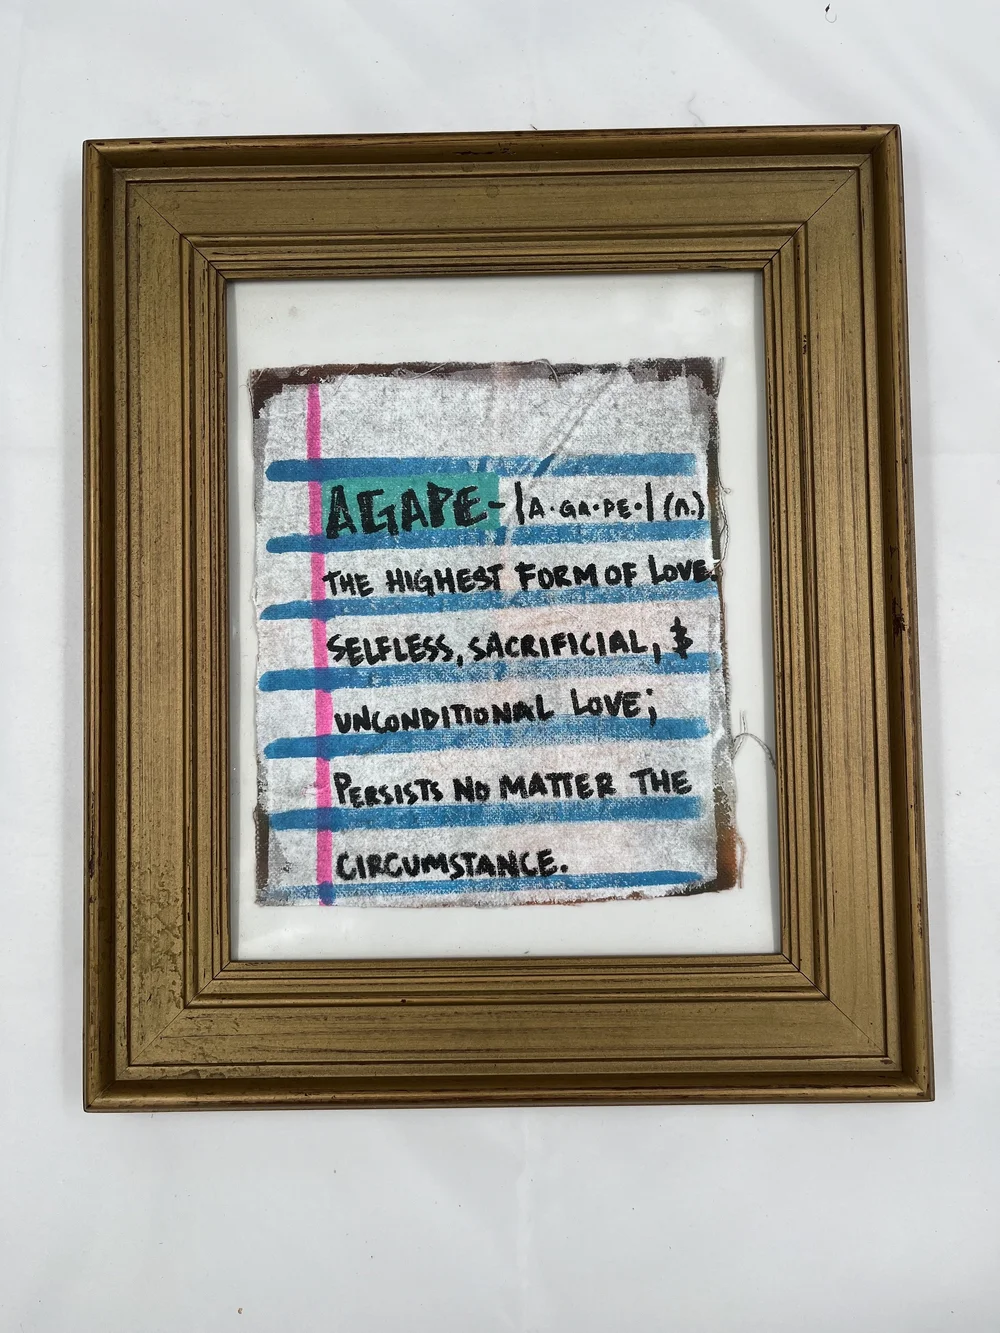 AGAPE- |A·GA·PE·| (n.)
THE HIGHEST FORM OF LOVE.
SELFLESS, SACRIFICIAL, $
UNCONDITIONAL LOVE;
PERSISTS NO MATTER THE
CIRCUMSTANCE.